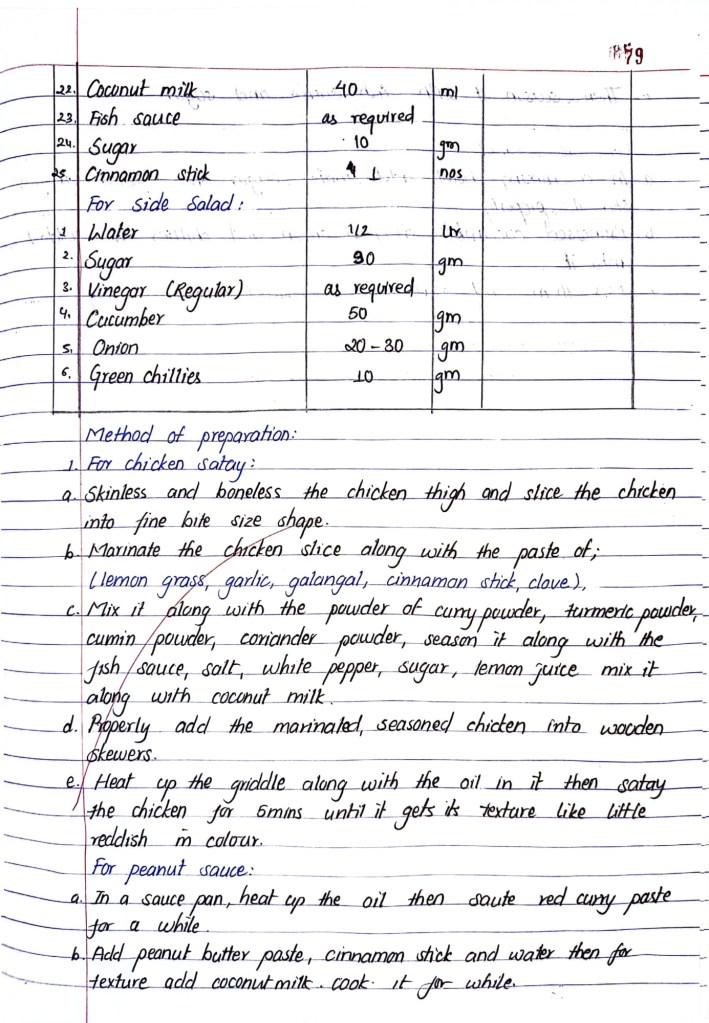 59
22. Coconut milk 40 ml
23. Fish sauce as required
24. Sugar 10 gm
25. Cinnamon stick 1 nos
For side Salad :
1 Water 1/2 Ltr.
2. Sugar 30 gm
3. Vinegar (Regular) as required
4. Cucumber 50 gm
5. Onion 20 - 30 gm
6. Green chillies 10 gm
Method of preparation:
1. For chicken satay :
a. Skinless and boneless the chicken thigh and slice the chicken
into fine bite size shape.
b. Marinate the chicken slice along with the paste of;
(lemon grass, garlic, galangal, cinnamon stick, clove),
c. Mix it along with the powder of curry powder, turmeric powder,
cumin powder, coriander powder, season it along with the
fish sauce, salt, white pepper, sugar, lemon juice mix it
along with coconut milk.
d. Properly add the marinated, seasoned chicken into wooden
skewers.
e. Heat up the griddle along with the oil in it then satay
the chicken for 5mins until it gets its texture like little
reddish in colour.
For peanut sauce:
a. In a sauce pan, heat up the oil then saute red curry paste
for a while.
b. Add peanut butter paste, cinnamon stick and water then for
texture add coconut milk. cook it for while.